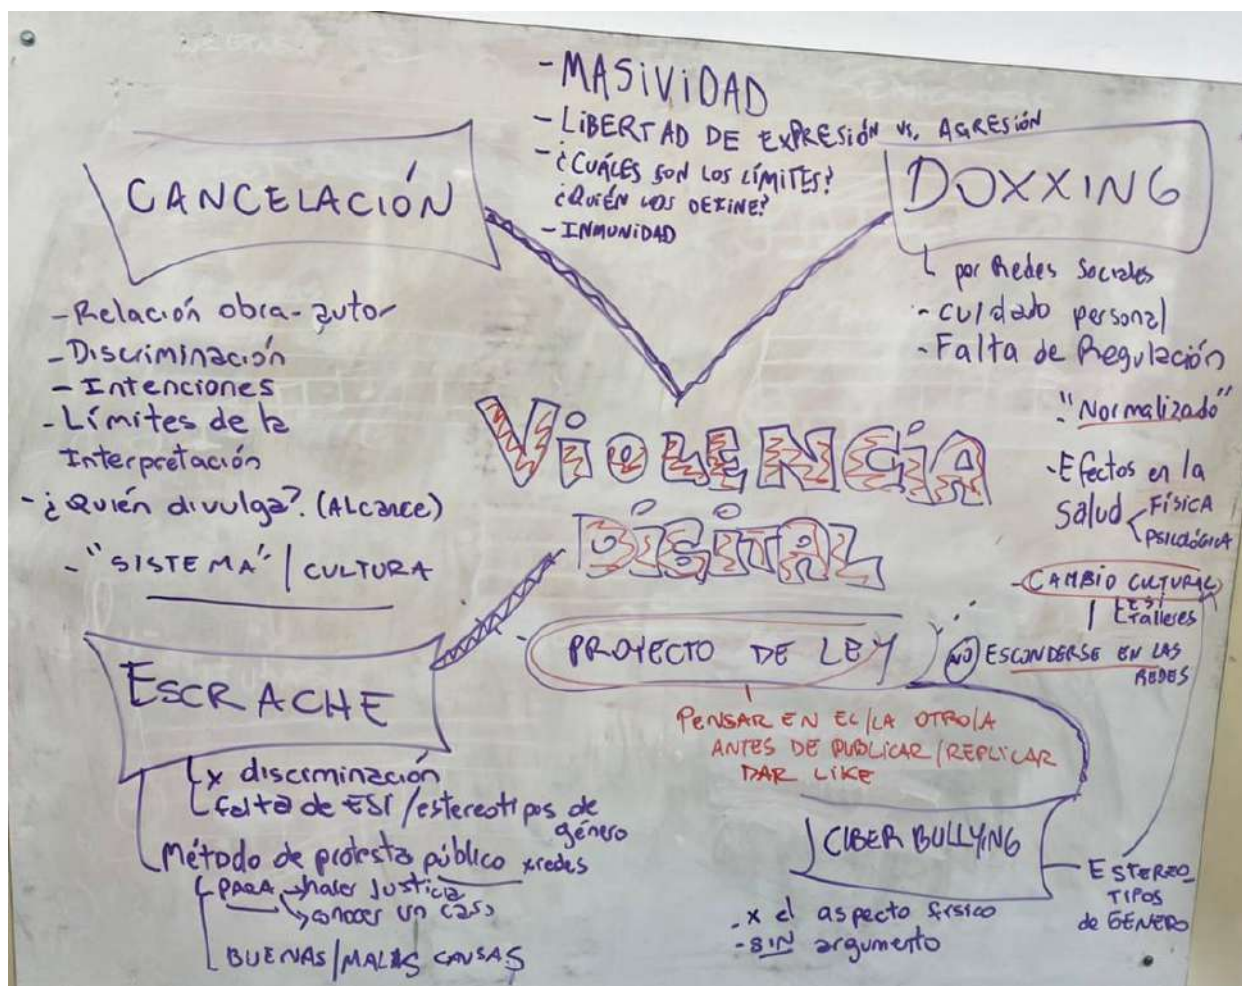 - MASIVIDAD
- LIBERTAD DE EXPRESIÓN vs. AGRESIÓN
- ¿CUÁLES SON LOS LÍMITES?
¿QUIÉN LOS DEFINE?
- INMUNIDAD
CANCELACIÓN
- Relación obra-autor
- Discriminación
- Intenciones
- Límites de la
Interpretación
- ¿Quién divulga? (ALcance)
- "SISTEMA" / CULTURA
DOXXING
por Redes Sociales
- cuidado personal
- Falta de Regulación
"Normalizado"
- Efectos en la
Salud
FÍSICA
PSICOLÓGICA
- CAMBIO CULTURAL
ESI
talleres
NO ESCONDERSE EN LAS
REDES
VIOLENCIA
DIGITAL
- PROYECTO DE LEY
PENSAR EN EL/LA OTRO/A
ANTES DE PUBLICAR/REPLICAR
DAR LIKE
ESCRACHE
x discriminación
falta de ESI/estereotipos de
género
Método de protesta público x redes
PARA hacer Justicia
conocer un caso
BUENAS/MALAS CAUSAS
CIBER BULLYING
- x el aspecto físico
- SIN argumento
ESTEREO-
TIPOS
de GÉNERO